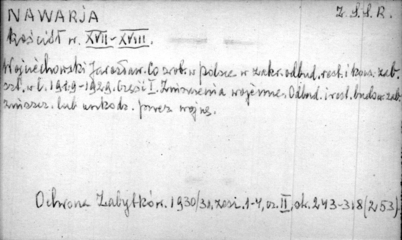 NAWARJA Z.S.S.R.
Kościół w. XVII-XVIII.
Wojciechowski Jarosław. Co zrob. w Polsce w zakr. odbud. rest. i kons. zab.
szt. w l. 1919-1929. Część I. Zniszczenia wojenne. Odbud. i rest. budow. zab.
zniszcz. lub uszkodz. przez wojnę.
Ochrona Zabytków. 1930/31, zesz. 1-4, cz. II, ok. 243-318 (253)